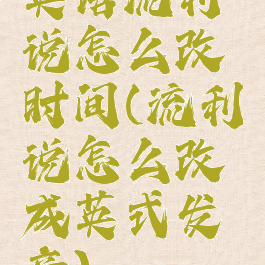 英语流利
说怎么改
时间(流利
说怎么改
成英式发
音)